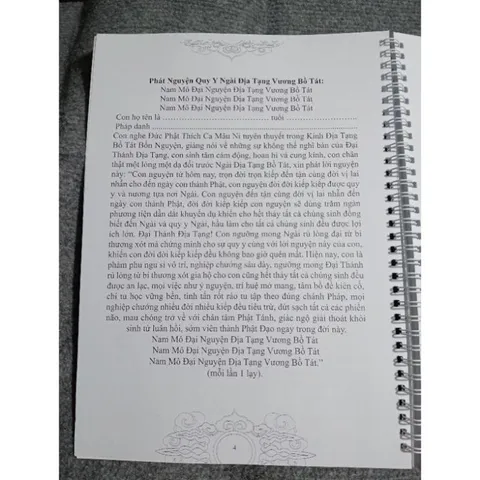 Phát Nguyện Quy Y Ngài Địa Tạng Vương Bồ Tát:
Nam Mô Đại Nguyện Địa Tạng Vương Bồ Tát
Nam Mô Đại Nguyện Địa Tạng Vương Bồ Tát
Nam Mô Đại Nguyện Địa Tạng Vương Bồ Tát
Con họ tên là ........................................ tuổi ................................
Pháp danh ................................................................................
Con nghe Đức Phật Thích Ca Mâu Ni tuyên thuyết trong Kinh Địa Tạng
Bồ Tát Bổn Nguyện, giảng nói về những sự không thể nghĩ bàn của Đại
Thánh Địa Tạng, con sinh tâm cảm động, hoan hỉ và cung kính, con chân
thật một lòng một dạ đối trước Ngài Địa Tạng Bồ Tát, xin phát lời nguyện
này: "Con nguyện từ hôm nay, trọn đời trọn kiếp đến tận cùng đời vị lai
nhẫn cho đến ngày con thành Phật, con nguyện đời đời kiếp kiếp được quy
y và nương tựa nơi Ngài. Con nguyện đến tận cùng đời vị lai nhẫn đến
ngày con thành Phật, đời đời kiếp kiếp con nguyện sẽ dùng trăm ngàn
phương tiện dẫn dắt khuyến dụ khiến cho hết thảy tất cả chúng sinh đồng
biết đến Ngài và quy y Ngài, hầu làm cho tất cả chúng sinh đều được lợi
ích lớn. Đại Thánh Địa Tạng! Con ngưỡng mong Ngài rủ lòng đại từ bi
thương xót mà chứng minh cho sự quy y cùng với lời nguyện này của con,
khiến con đời đời kiếp kiếp đều không bao giờ quên mất. Hiện nay, con là
phàm phu ngu si vô trí, nghiệp chướng sâu dày, ngưỡng mong Đại Thánh
rủ lòng từ bi thương xót gia hộ cho con cũng hết thảy tất cả chúng sinh đều
được an lạc, mọi việc như ý nguyện, trí huệ mở mang, tâm bồ đề kiên cố,
chí tu học vững bền, tinh tấn rốt ráo tu tập theo đúng chánh Pháp, mọi
nghiệp chướng nhiều đời nhiều kiếp đều tiêu trừ, dứt sạch tất cả các phiền
não, mau chóng trở về với chân tâm Phật Tánh, giác ngộ giải thoát khỏi
sinh tử luân hồi, sớm viên thành Phật Đạo ngay trong đời này.
Nam Mô Đại Nguyện Địa Tạng Vương Bồ Tát
Nam Mô Đại Nguyện Địa Tạng Vương Bồ Tát
Nam Mô Đại Nguyện Địa Tạng Vương Bồ Tát."
(mỗi lần 1 lạy).
4